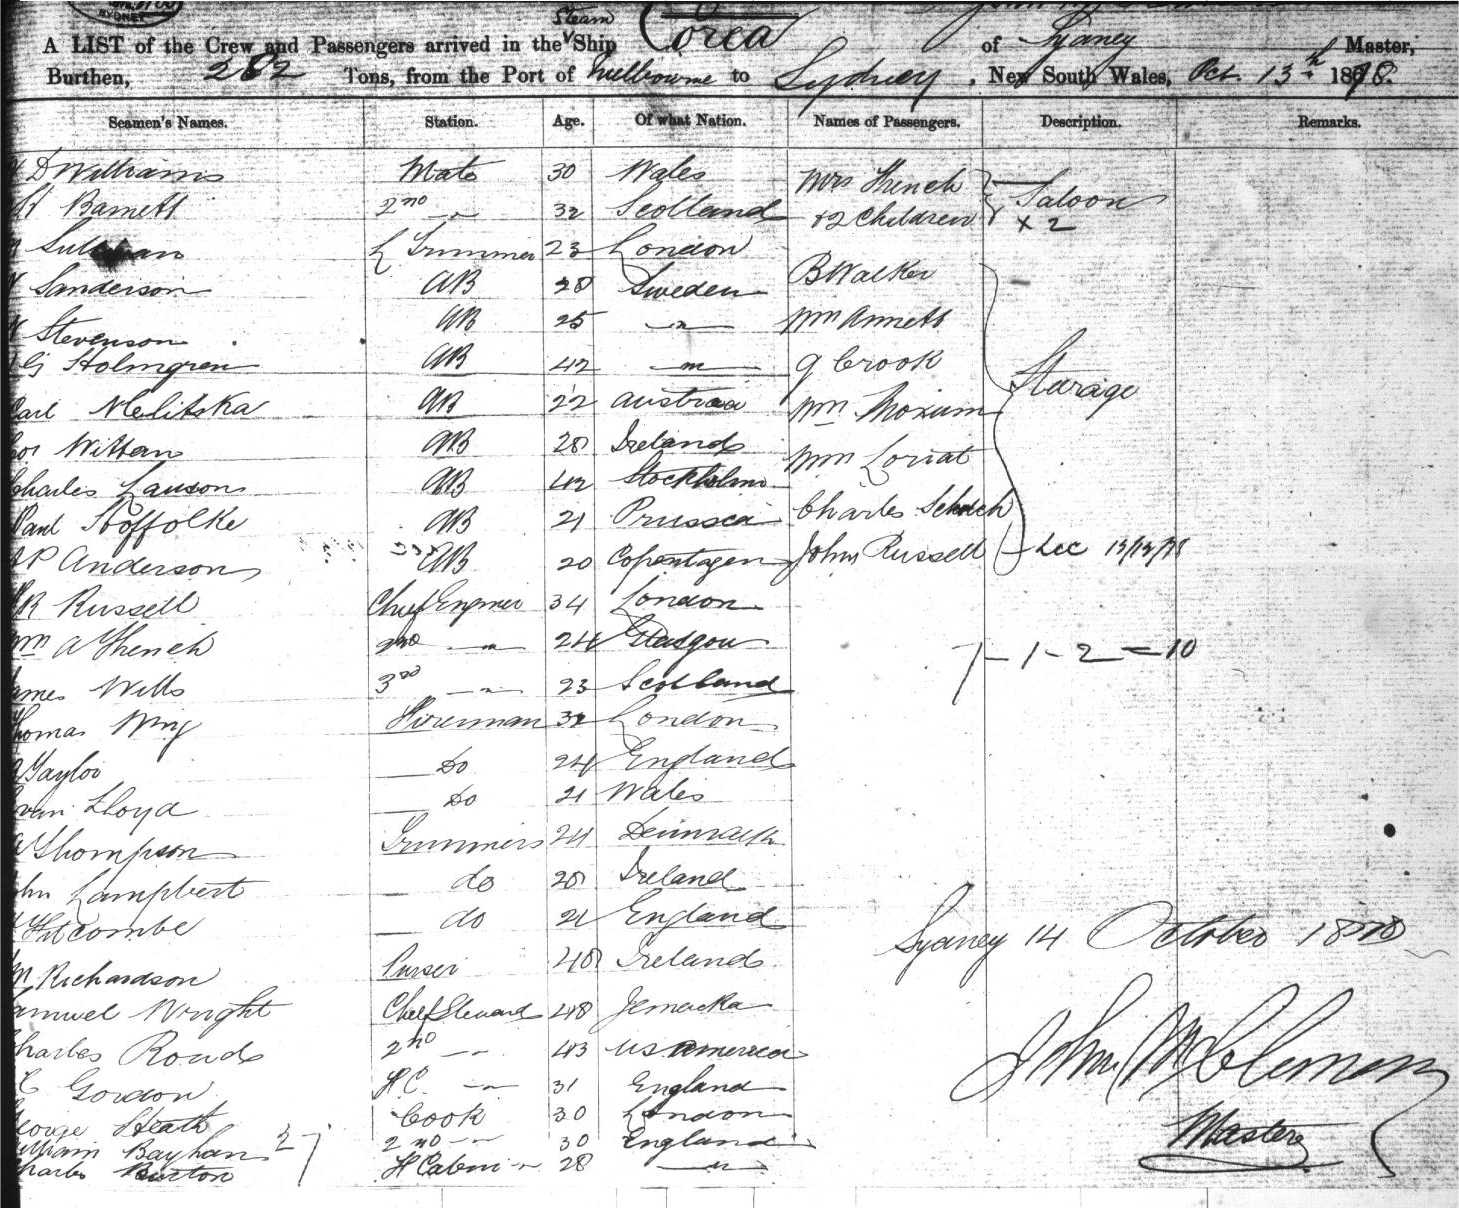 SYDNEY
Steam
A LIST of the Crew and Passengers arrived in the Ship Corea of Sydney Master,
Burthen, 282 Tons, from the Port of Melbourne to Sydney, New South Wales, Oct. 13th 1878.
Seamen's Names. Station. Age. Of what Nation. Names of Passengers. Description. Remarks.
D Williams Mate 30 Wales Mrs Thench Saloon
Barnett 2nd " 32 Scotland + 2 Children x 2
Sullivan L Trimmer 23 London
Sanderson AB 28 Sweden B Walker
Stevenson AB 25 " Wm Annett
G Holmgren AB 42 " G Crook Starage
Carl Melitska AB 22 Austria Wm Moxum
Wittan AB 28 Ireland Wm Loriat
Charles Lauson AB 42 Stockholm
Paul Stoffolke AB 21 Prussia Charles Schach
P Anderson AB 20 Copentagen John Russell Dec 13/12/78
R Russell Chief Enginer 34 London
Wm A Thench 2nd " 24 Glasgow 7-1-2=10
James Wills 3rd " 23 Scotland
Thomas Wing Fireman 32 London
Taylor Do 24 England
Evan Lloyd Do 21 Wales
Thompson Trimmers 24
John Lampbert do 28 Ireland
Titcombe do 21 England
Sydney 14 October 1878
Richardson Purser 48 Ireland
Samuel Wright Chief Steward 48 Jemacka
Charles Rouds 2nd " 43 US America
John McClemon
C Gordon F.C. " 31 England
George Heath Cook 30 London
Master
William Bayhan 27 2nd " 30 England
Charles Burton F Cabin " 28 "